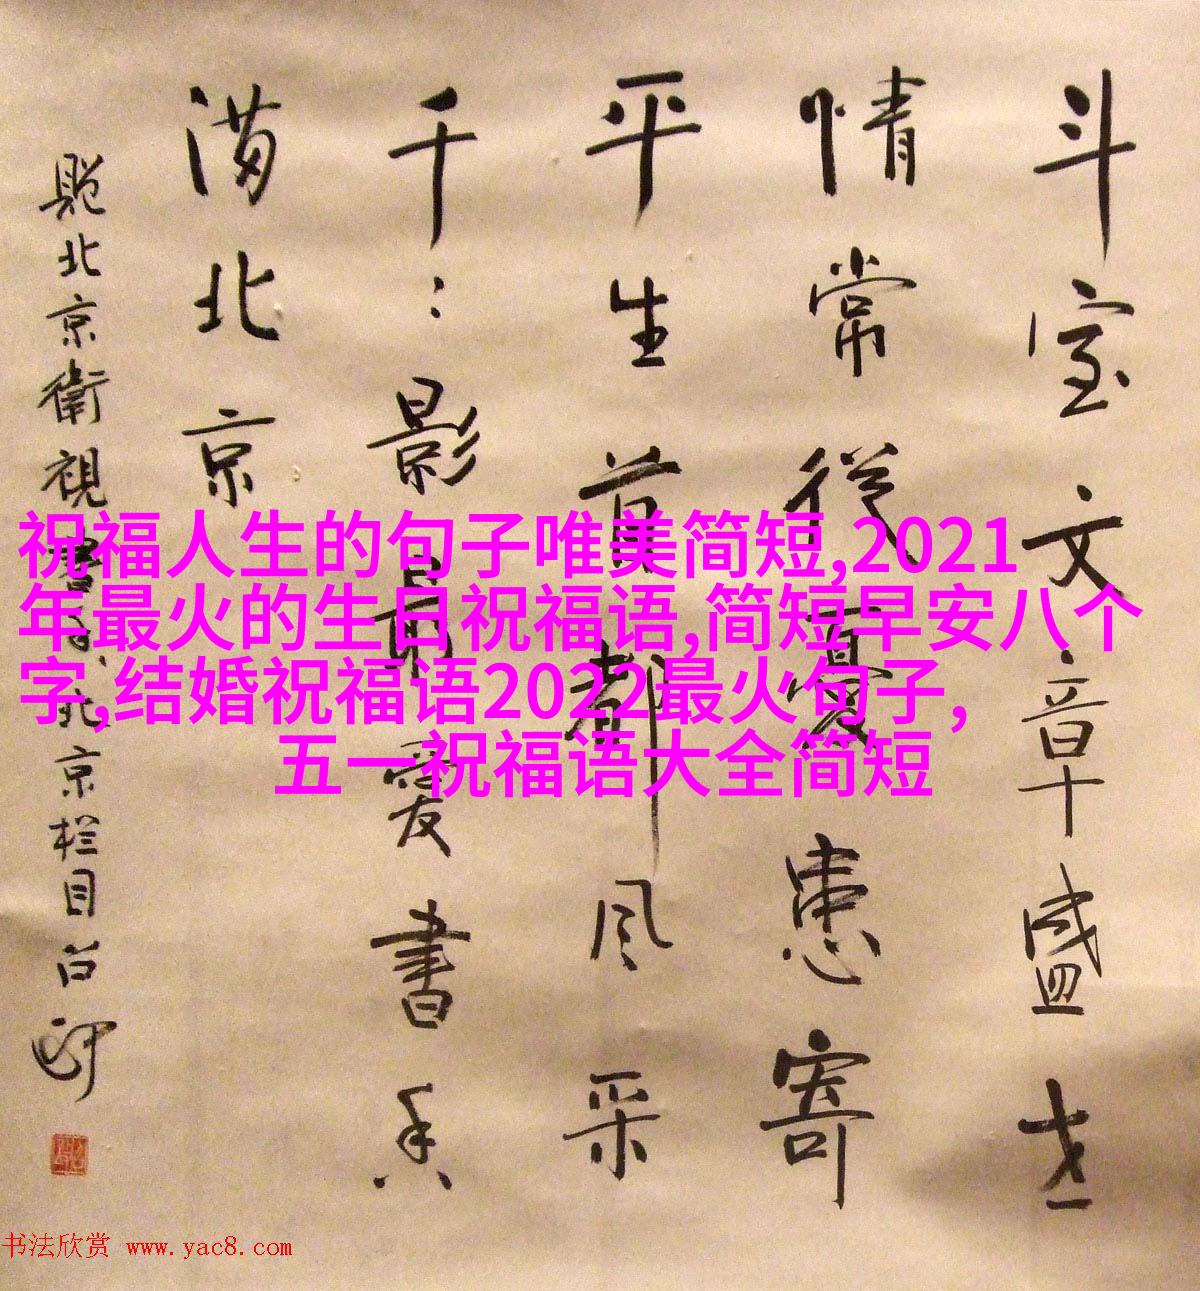 斗室文章盛世
情常從憂患寄
平生首都風采
千:影最愛書香
满北京
題北京衛視書香北京栏目
祝福人生的句子唯美简短,2021
年最火的生日祝福语,简短早安八个
字,结婚祝福语2022最火句子,
五一祝福语大全简短
书法欣赏 www.yac8.com